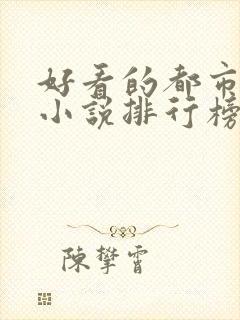 好看的都市
小說排行榜
陳攀霄